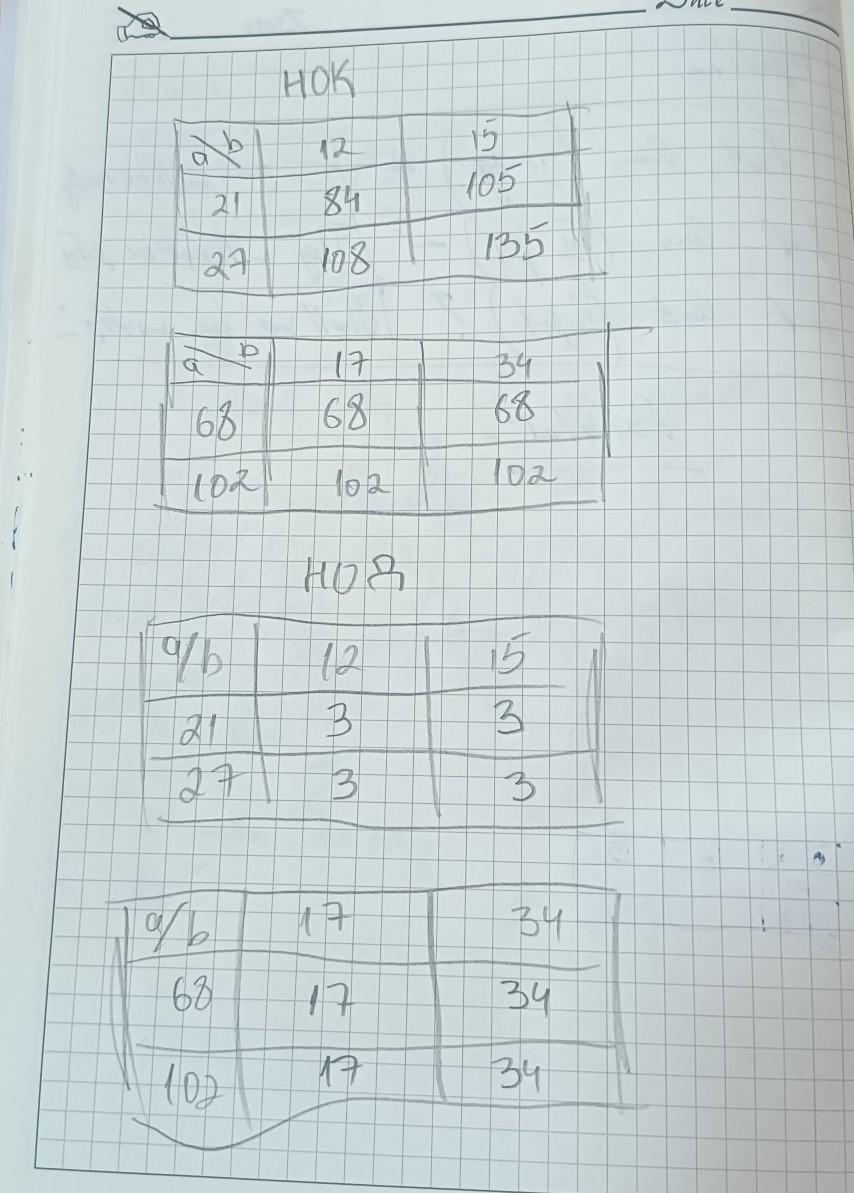 Date
НОК
a/b 12 15
21 84 105
27 108 135
a/b 17 34
68 68 68
102 102 102
НОД
a/b 12 15
21 3 3
27 3 3
a/b 17 34
68 17 34
102 17 34